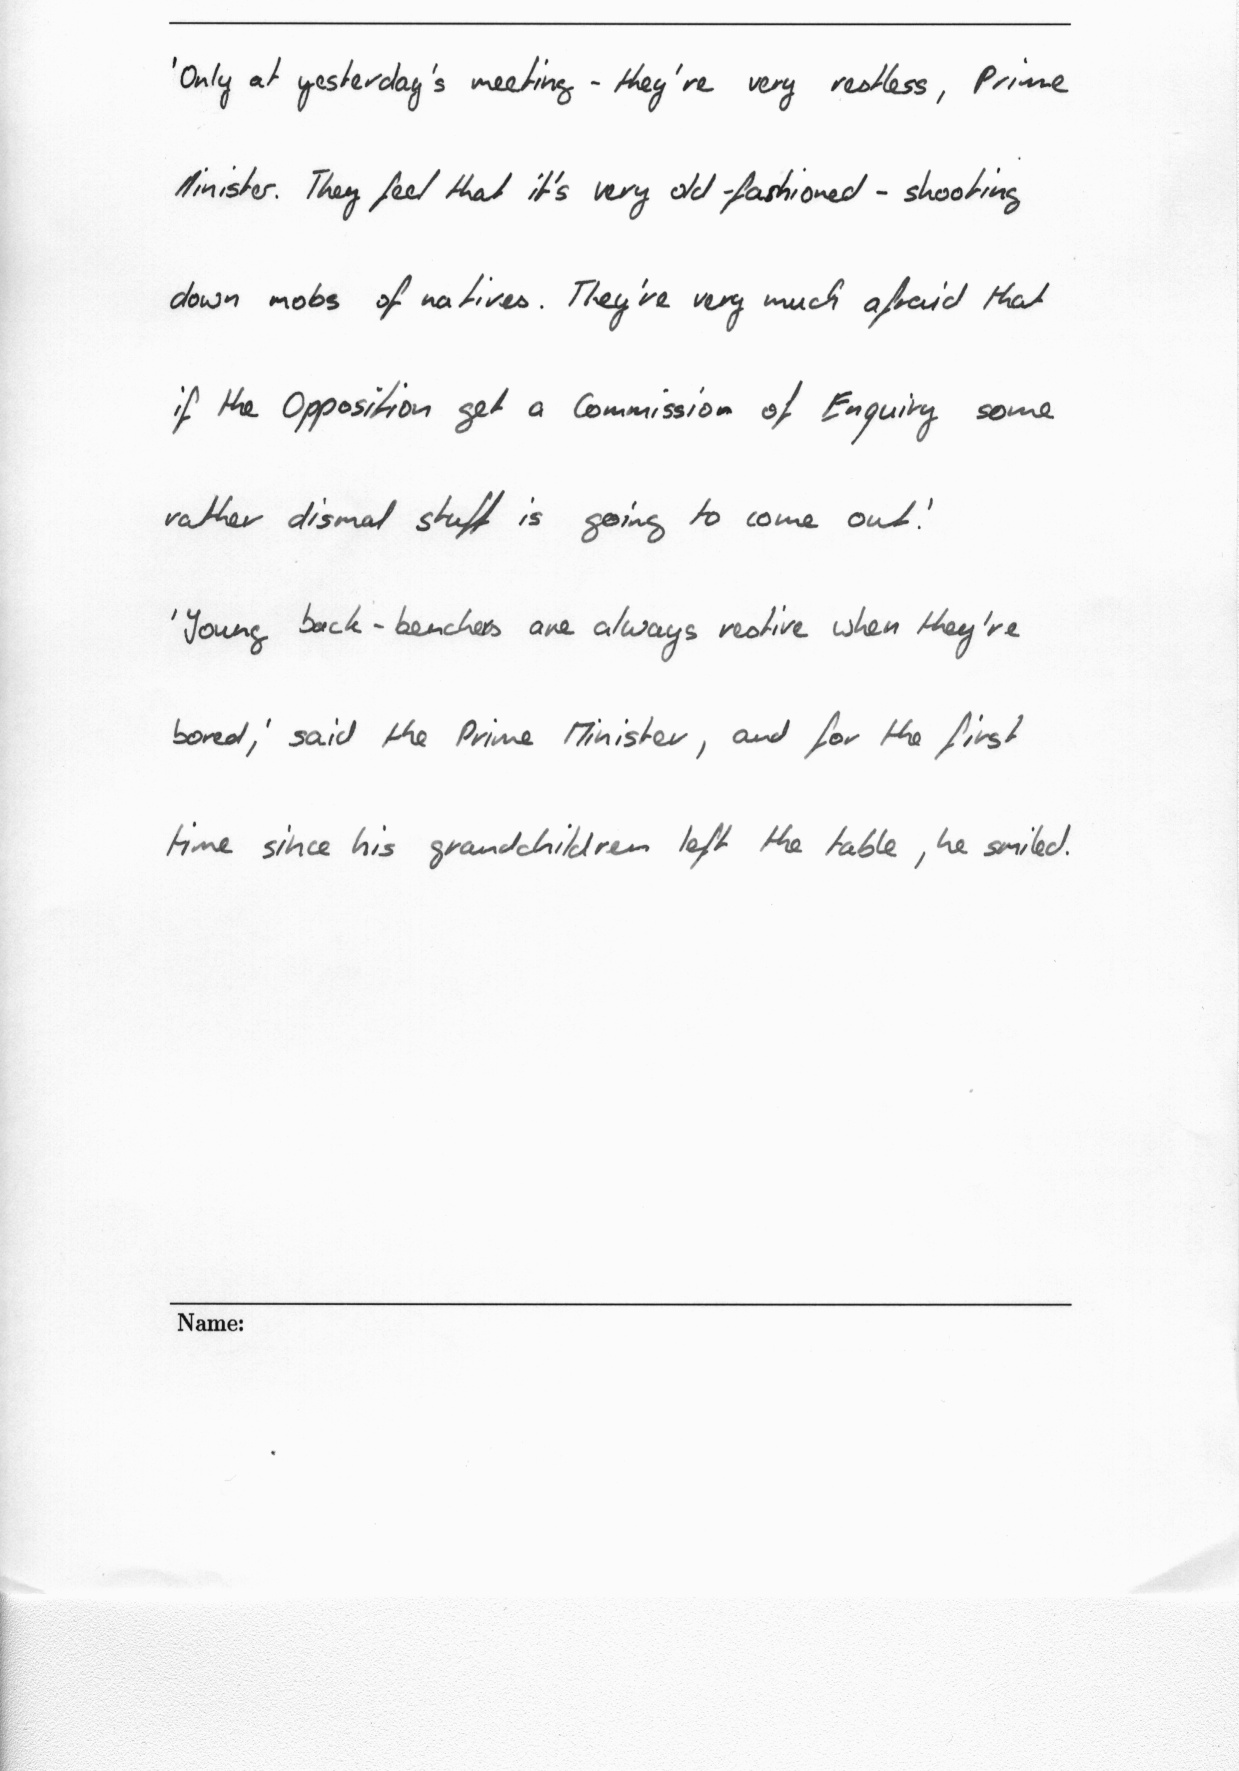 'Only at yesterday's meeting - they're very restless, Prime
Minister. They feel that it's very old-fashioned - shooting
down mobs of natives. They're very much afraid that
if the Opposition get a Commission of Enquiry some
rather dismal stuff is going to come out.'
'Young back-benchers are always restive when they're
bored,' said the Prime Minister, and for the first
time since his grandchildren left the table, he smiled.
Name: